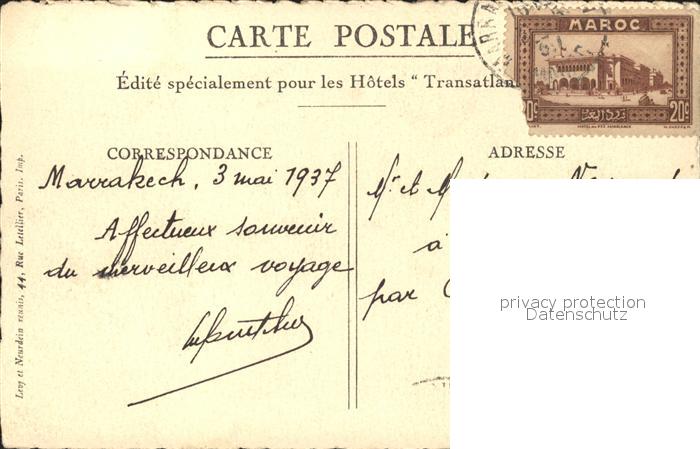 CARTE POSTALE
MARRAK
MAROC
Édité spécialement pour les Hôtels " Transatlan
20c
HOTEL DES PTT CASABLANCA
CORRESPONDANCE
ADRESSE
Marrakech, 3 mai 1937
Affectueux souvenir
du merveilleux voyage
Mr et M
à
par
privacy protection
Datenschutz
Levy et Neurdein réunis, 44, Rue Letellier, Paris. Imp.